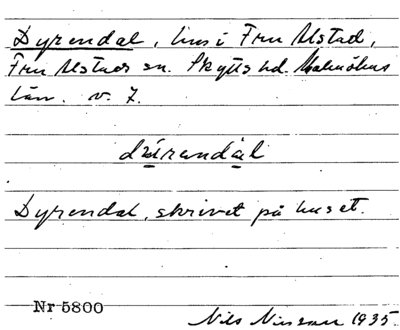 Dyrendal, hus i Fru Alstad,
Fru Alstads sn. Skytts hd. Malmöhus
län. v. 7.
Dyrendal, skrivet på huset.
Nr 5800
Nils Nilsson 1935.